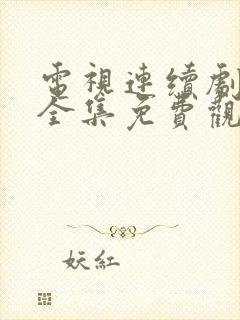 電視連續劇
全集免費觀
妖紅